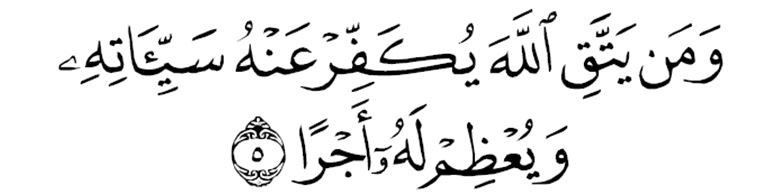 وَمَن يَتَّقِ ٱللَّهَ يُكَفِّرْ عَنْهُ سَيِّـَٔاتِهِۦ
وَيُعْظِمْ لَهُۥٓ أَجْرًا ٥